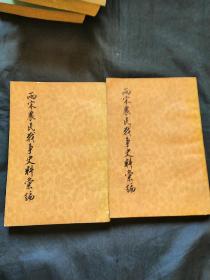 两宋农民战争史料汇编
两宋农民战争史料汇编